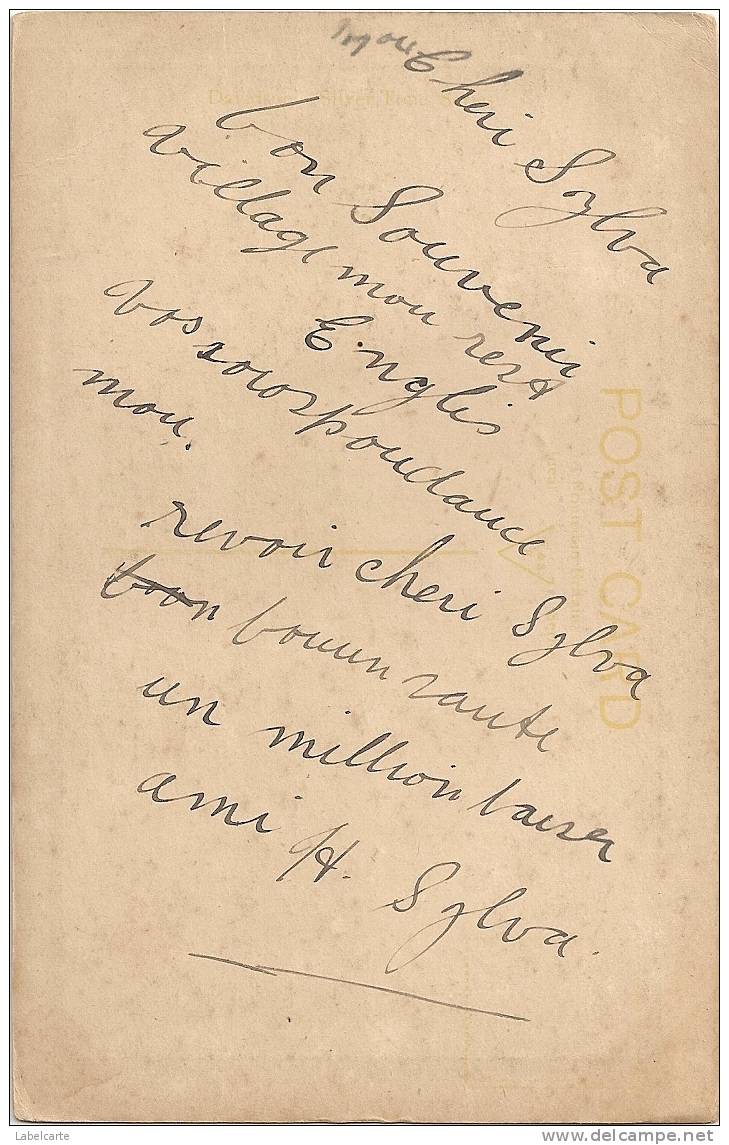 Cheri Sylva
bon Souvenir
village mon rest
Englis
vos sorospondance
mon.
revoir cheri Sylva
boon bonun sante
un million baiser
ami H. Sylva.
POST CARD
Labelcarte
www.delcampe.net